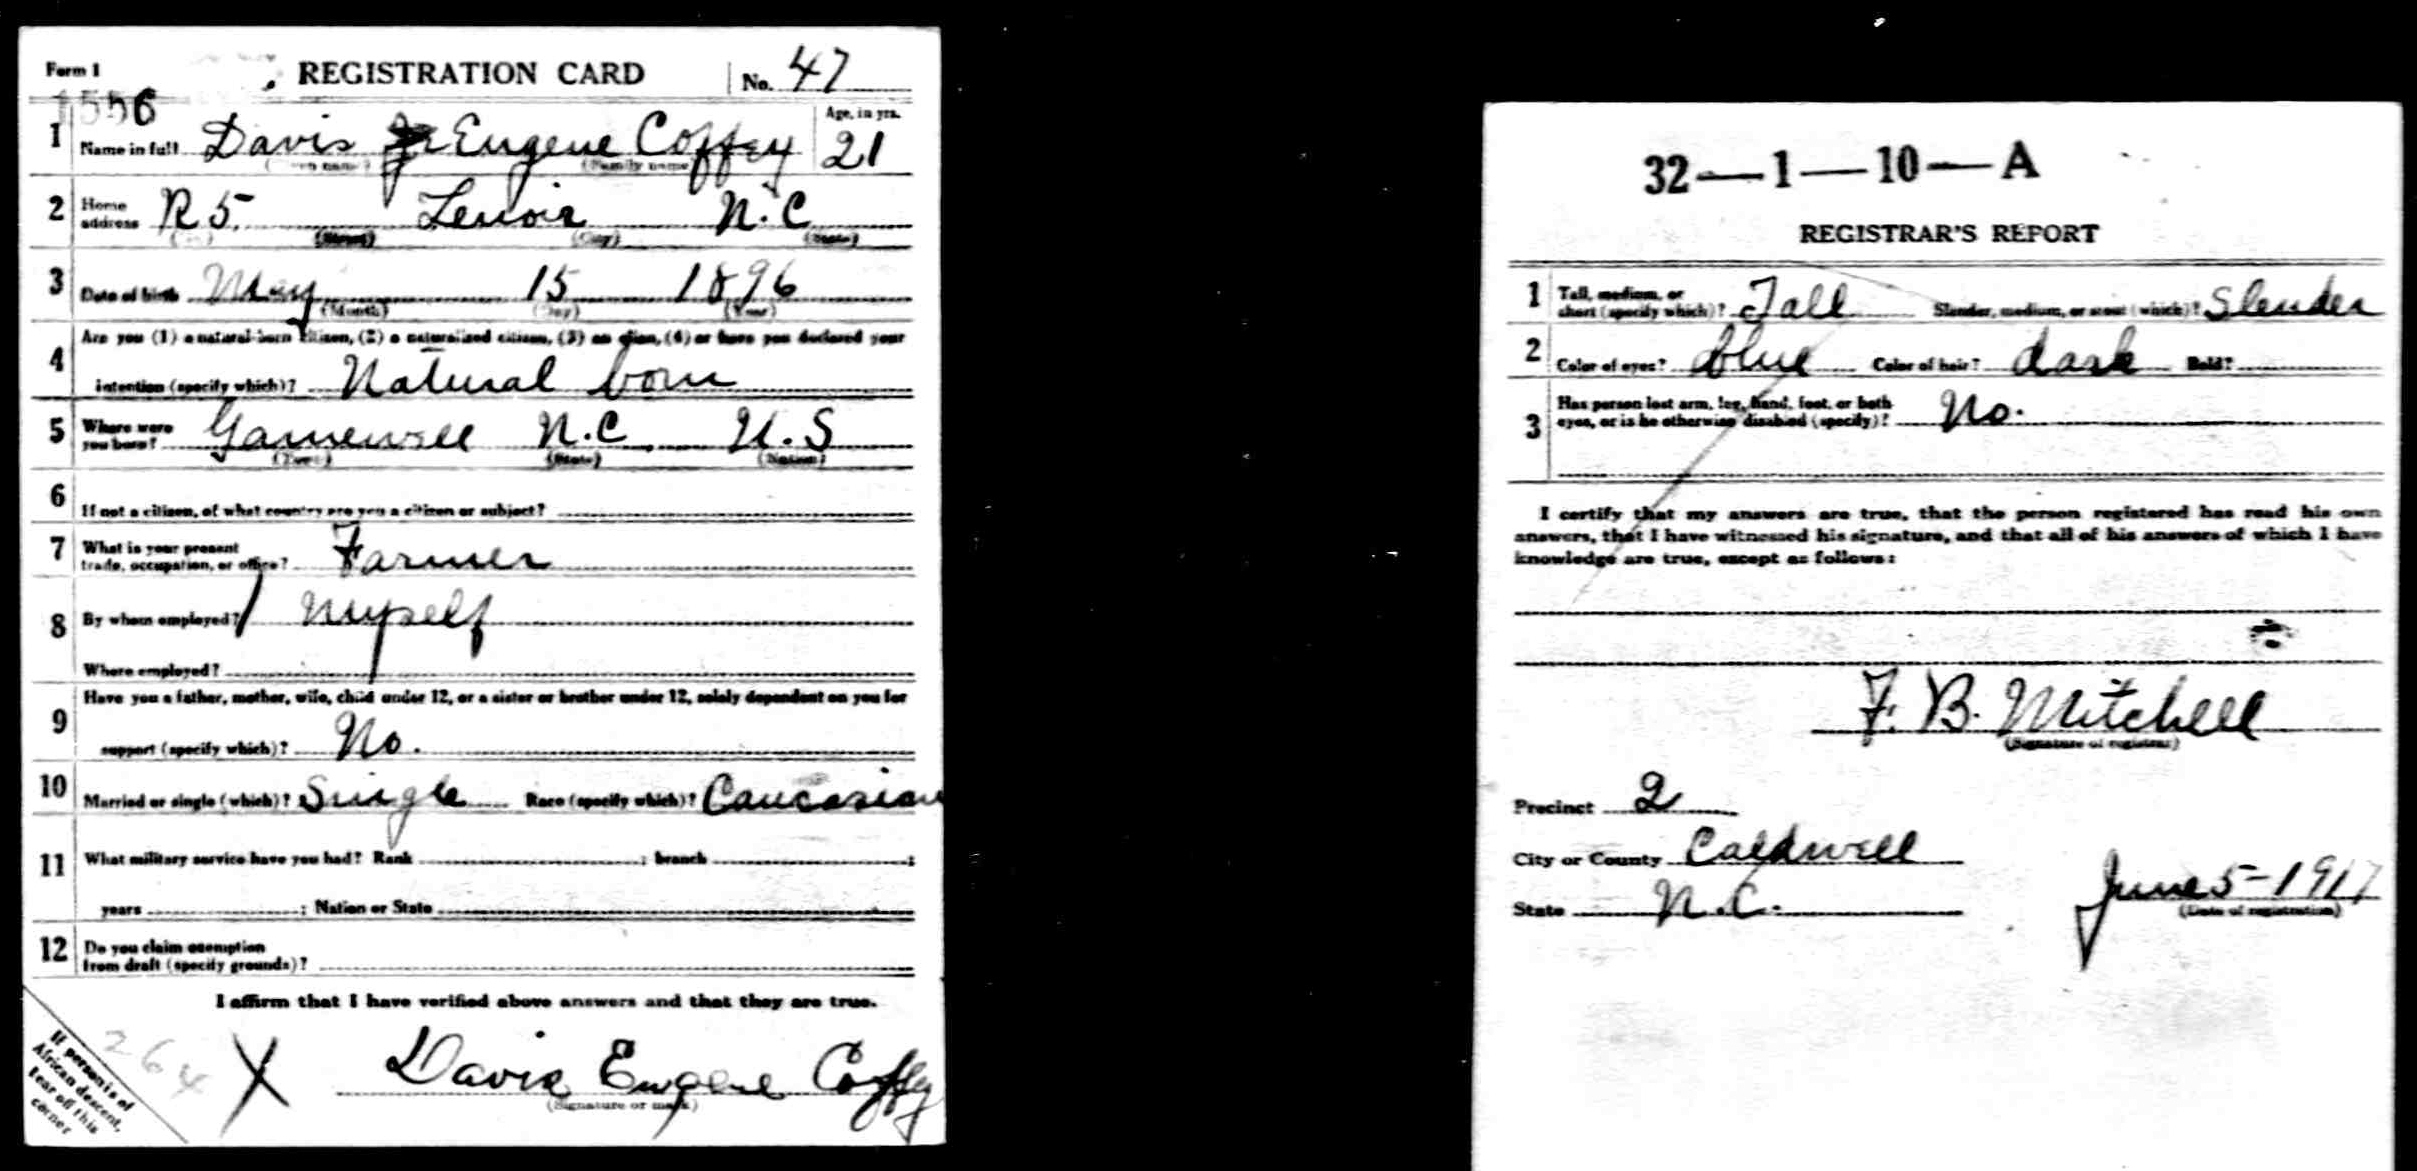 Form 1
REGISTRATION CARD
No. 47
1556
1 Name in full Davis Eugene Coffey
(Family name)
Age, in yrs. 21
2 Home address R 5. Lenoir N.C
(Street) (City) (State)
3 Date of birth May 15 1896
(Month) (Day) (Year)
4 Are you (1) a natural-born citizen, (2) a naturalized citizen, (3) an alien, (4) or have you declared your
intention (specify which)? Natural born
5 Where were you born? Gamewell N.C U.S
(Town) (State) (Nation)
6 If not a citizen, of what country are you a citizen or subject?
7 What is your present trade, occupation, or office? Farmer
8 By whom employed? Myself
Where employed?
9 Have you a father, mother, wife, child under 12, or a sister or brother under 12, solely dependent on you for
support (specify which)? No.
10 Married or single (which)? Single Race (specify which)? Caucasian
11 What military service have you had? Rank ; branch ;
years ; Nation or State
12 Do you claim exemption
from draft (specify grounds)?
I affirm that I have verified above answers and that they are true.
264 X Davis Eugene Coffey
(Signature or mark)
If person is of
African descent,
tear off this
corner
32—1—10—A
REGISTRAR'S REPORT
1 Tall, medium, or short (specify which)? Tall Slender, medium, or stout (which)? Slender
2 Color of eyes? blue Color of hair? dark Bald?
3 Has person lost arm, leg, hand, foot, or both
eyes, or is he otherwise disabled (specify)? No.
I certify that my answers are true, that the person registered has read his own
answers, that I have witnessed his signature, and that all of his answers of which I have
knowledge are true, except as follows:
F. B. Mitchell
(Signature of registrar)
Precinct 2
City or County Caldwell
State N.C.
June 5-1917
(Date of registration)